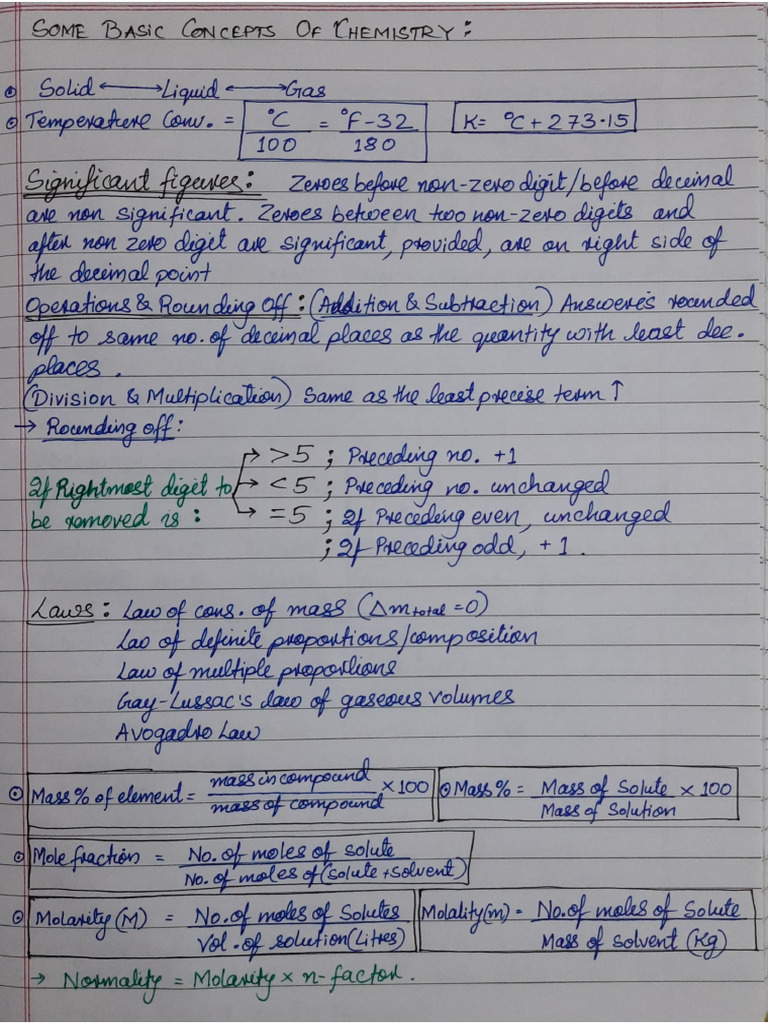 SOME BASIC CONCEPTS OF CHEMISTRY:
⊙ Solid ⟷ Liquid ⟷ Gas
⊙ Temperature Conv. = °C/100 = °F-32/180 K = °C + 273.15
Significant figures: Zeroes before non-zero digit/before decimal
are non significant. Zeroes between two non-zero digits and
after non zero digit are significant, provided, are on right side of
the decimal point
Operations & Rounding Off: (Addition & Subtraction) Answere's rounded
off to same no. of decimal places as the quantity with least dec.
places.
(Division & Multiplication) Same as the least precise term ↑
→ Rounding off:
→ >5 ; Preceding no. +1
If Rightmost digit to → <5 ; Preceding no. unchanged
be removed is: → =5 ; If Preceding even, unchanged
; If Preceding odd, +1.
Laws: Law of cons. of mass (Δm total = 0)
Lao of definite proportions/composition
Law of multiple proportions
Gay-Lussac's law of gaseous volumes
Avogadro Law
⊙ Mass % of element = mass in compound/mass of compound × 100 ⊙ Mass % = Mass of Solute/Mass of Solution × 100
⊙ Mole fraction = No. of moles of solute/No. of moles of (solute + solvent)
⊙ Molarity (M) = No. of moles of Solutes/Vol. of solution (Litres) Molality (m) = No. of moles of Solute/Mass of solvent (Kg)
→ Normality = Molarity × n-factor.